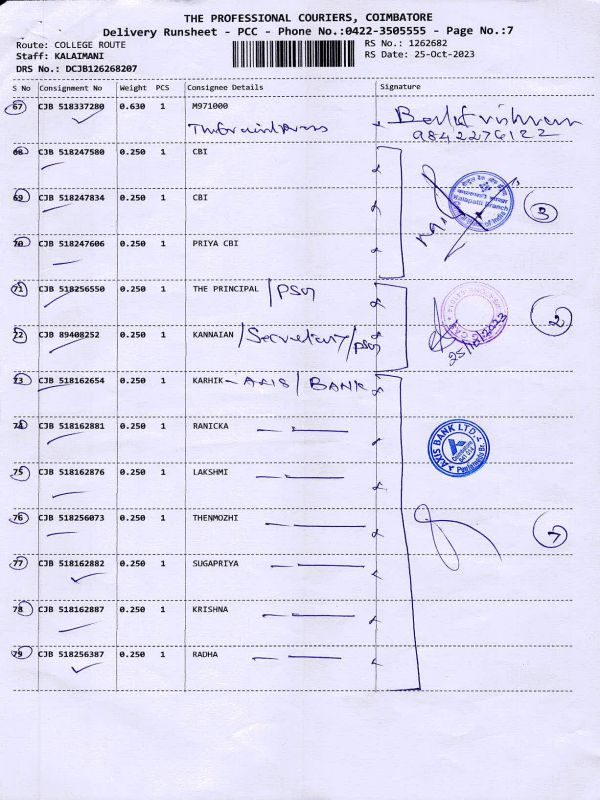 THE PROFESSIONAL COURIERS, COIMBATORE
Delivery Runsheet - PCC - Phone No.:0422-3505555 - Page No.:7
Route: COLLEGE ROUTE RS No.: 1262682
Staff: KALAIMANI RS Date: 25-Oct-2023
DRS No.: DCJB126268207
S No Consignment No Weight PCS Consignee Details Signature
67 CJB 518337280 0.630 1 M971000
9842276122
68 CJB 518247580 0.250 1 CBI
69 CJB 518247834 0.250 1 CBI
Kalapatti Branch
3
70 CJB 518247606 0.250 1 PRIYA CBI
71 CJB 518256550 0.250 1 THE PRINCIPAL /PSG
2
25/10/2023
72 CJB 89408252 0.250 1 KANNAIAN /Secretary/PSG
73 CJB 518162654 0.250 1 KARHIK - AXIS / BANK
74 CJB 518162881 0.250 1 RANICKA
AXIS BANK LTD.
75 CJB 518162876 0.250 1 LAKSHMI
76 CJB 518256073 0.250 1 THENMOZHI
7
77 CJB 518162882 0.250 1 SUGAPRIYA
78 CJB 518162887 0.250 1 KRISHNA
79 CJB 518256387 0.250 1 RADHA